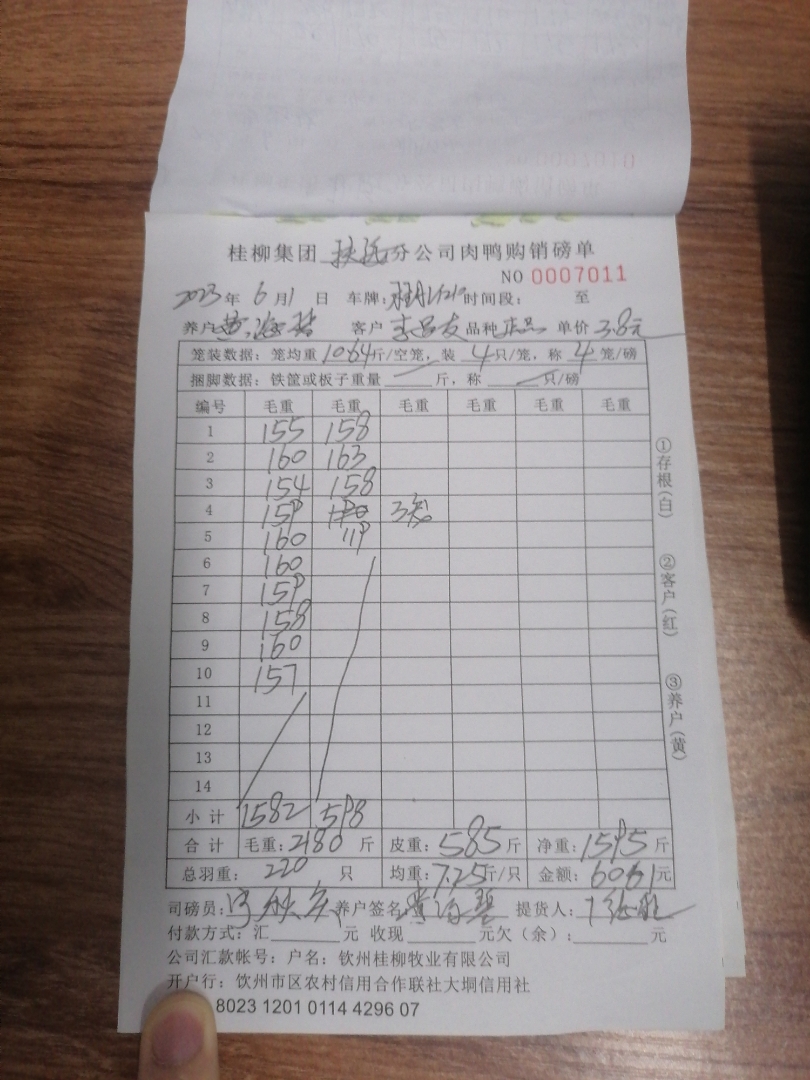 桂柳集团 扶绥 分公司肉鸭购销磅单
NO 0007011
2023 年 6 月 1 日 车牌: 时间段: 至
养户 黄海 客户 李昌友 品种 单价 3.8元
笼装数据: 笼均重 10.64 斤/空笼, 装 4 只/笼, 称 4 笼/磅
捆脚数据: 铁筐或板子重量 斤, 称 只/磅
编号 毛重 毛重 毛重 毛重 毛重 毛重
1 155 158
2 160 163
3 154 158
4 159 3笼
5 160 119
6 160
7 159
8 158
9 160
10 157
11
12
13
14
小计 1582 598
合计 毛重: 2180 斤 皮重: 585 斤 净重: 1595 斤
总羽重: 220 只 均重: 7.25 斤/只 金额: 6061 元
司磅员: 养户签名 黄海 提货人:
付款方式: 汇 元 收现 元欠(余): 元
公司汇款帐号: 户名: 钦州桂柳牧业有限公司
开户行: 钦州市区农村信用合作联社大垌信用社
8023 1201 0114 4296 07
①存根(白)
②客户(红)
③养户(黄)